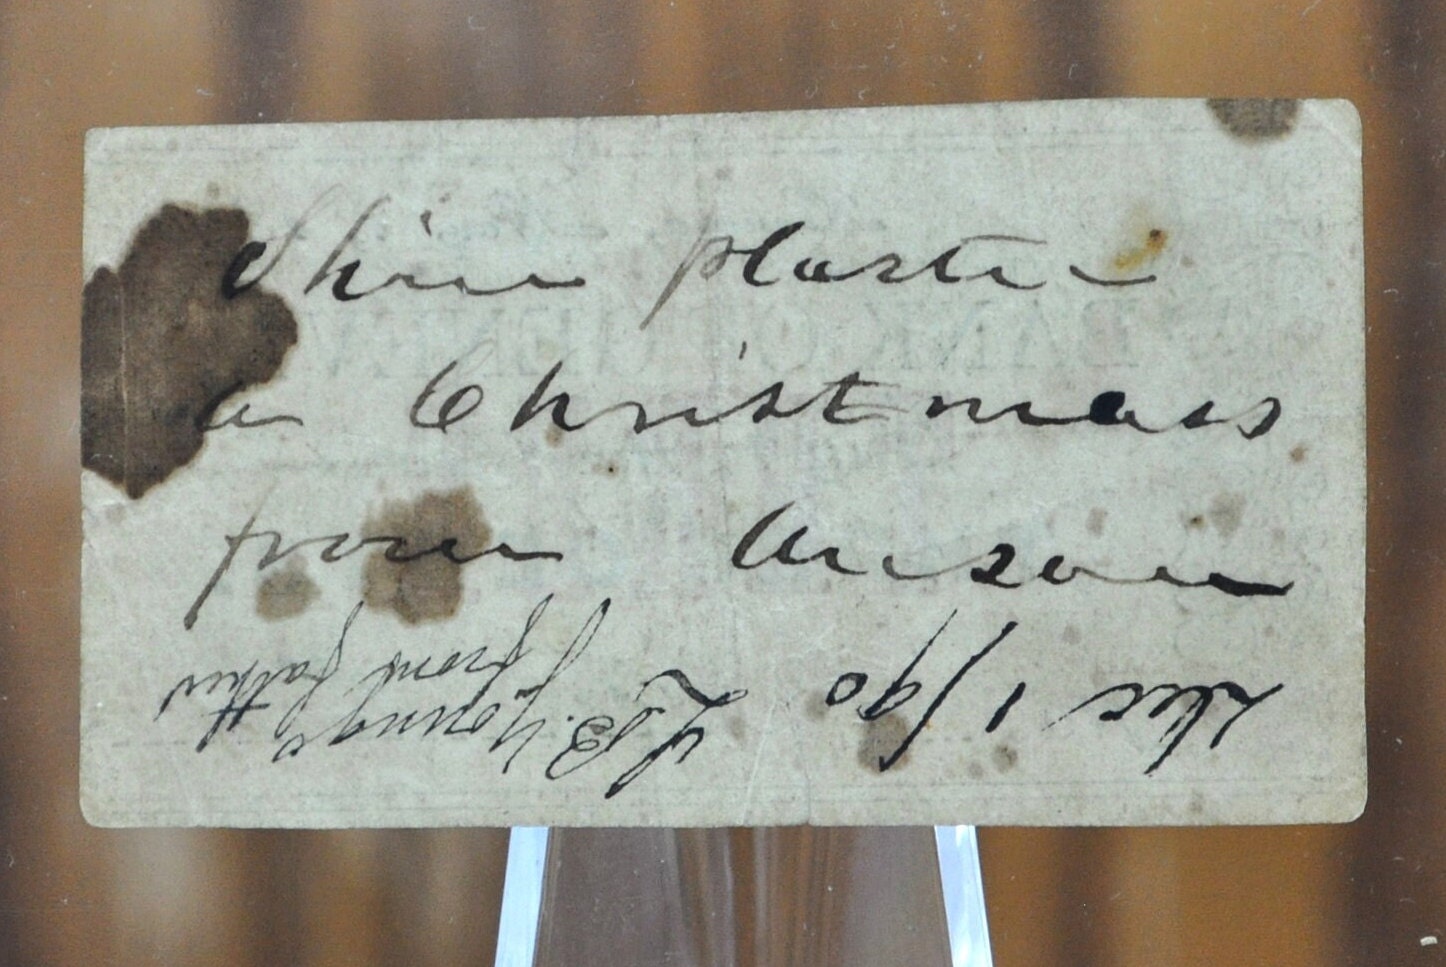 Shin plaster
a Christmass
from Anson
Dec 1/90
L B Young
from father